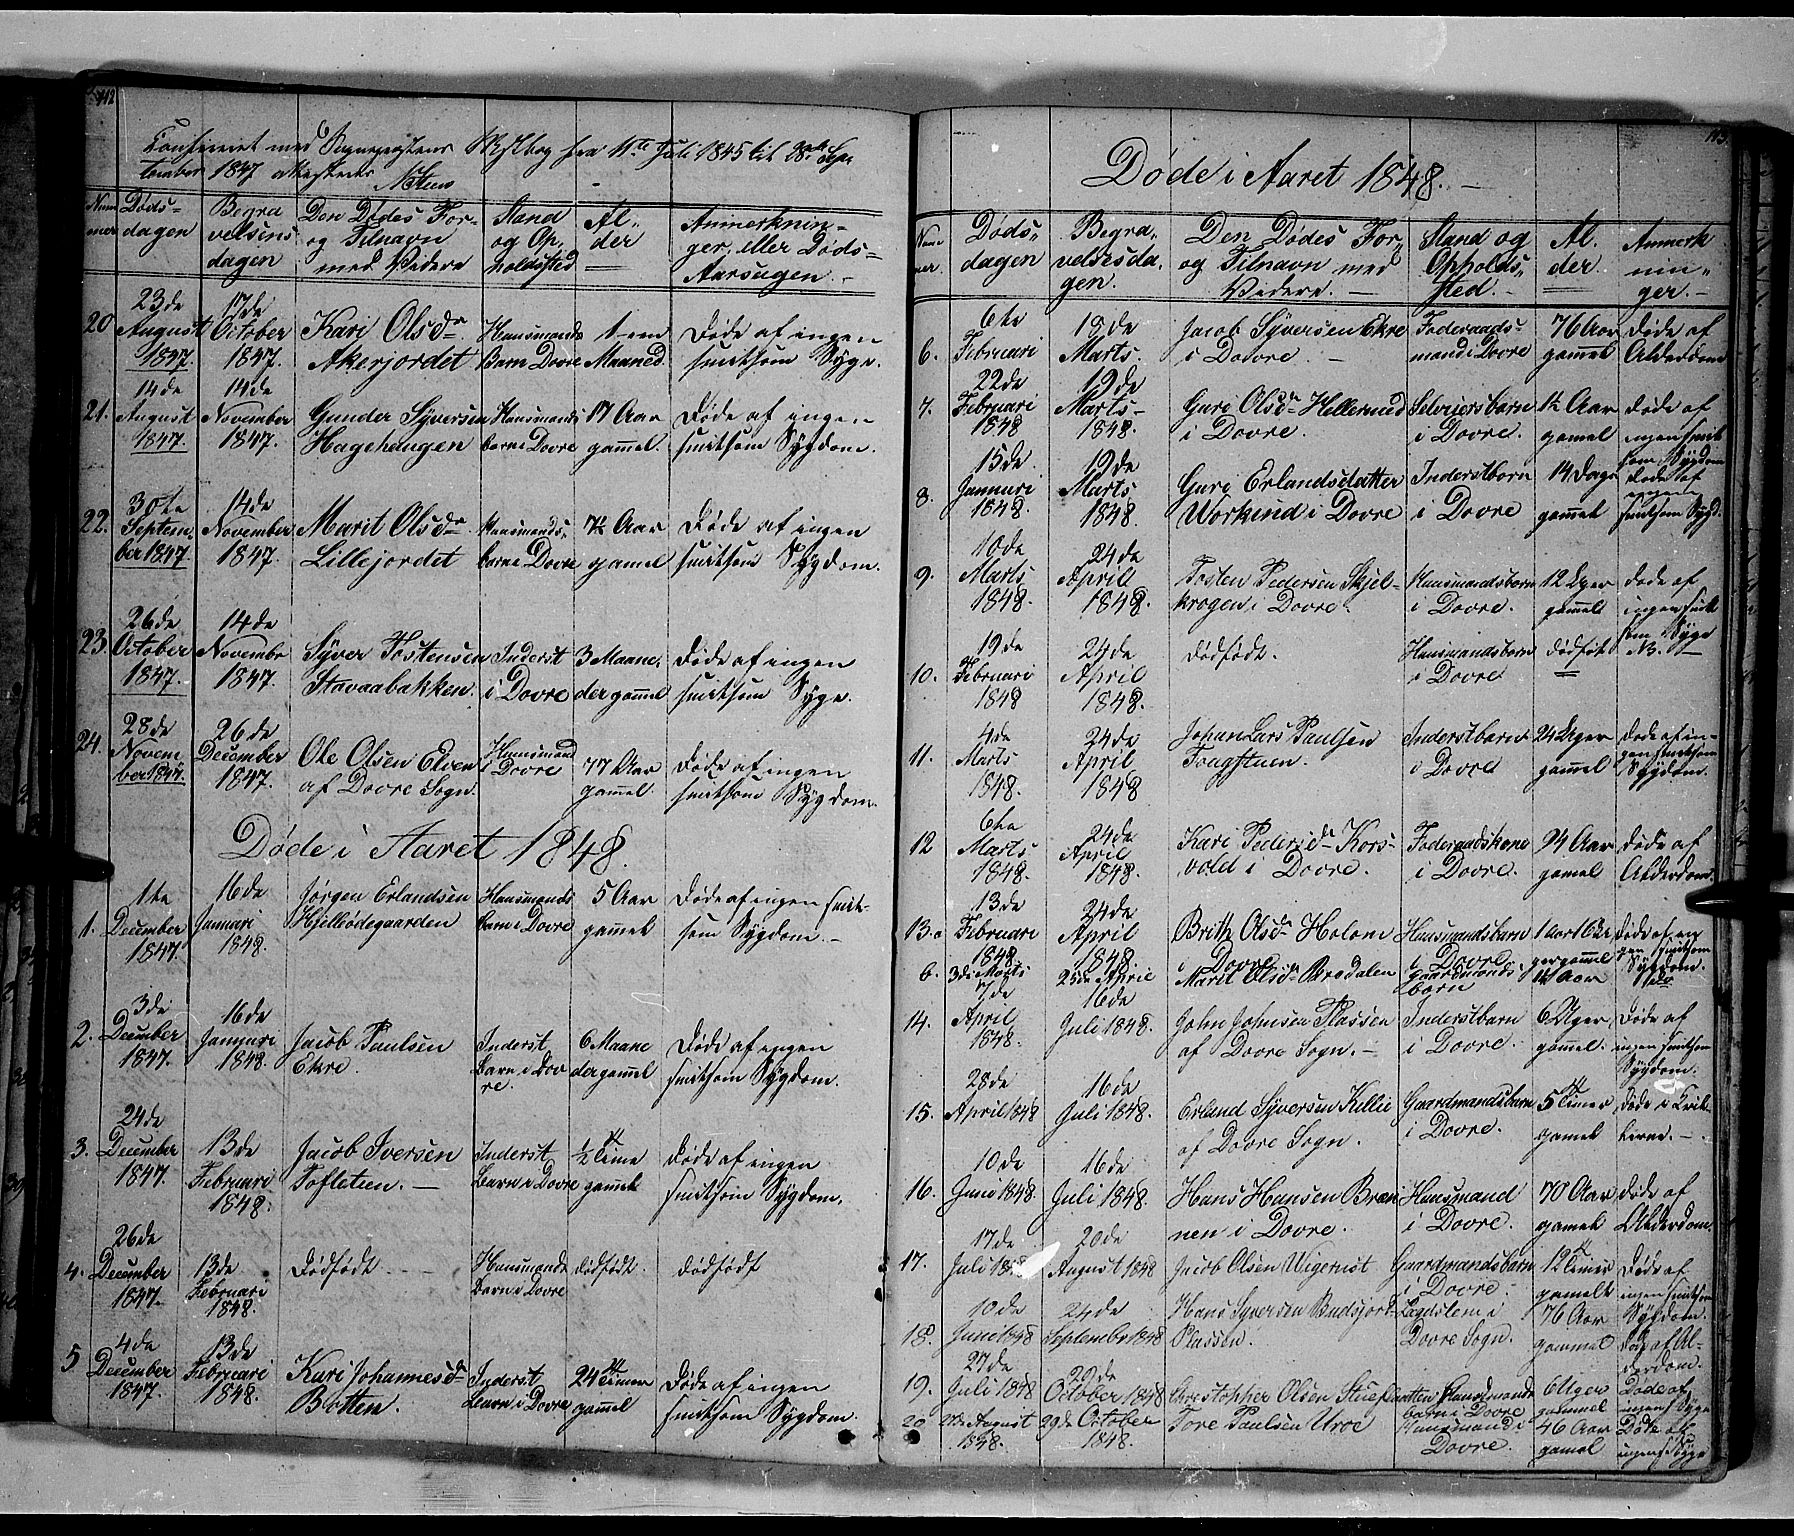 142
Confereret med Sognepræstens Bog fra 11te Juli 1845 til 28de Sep-
tember 1847 attesteres
Num mer
Døds- dagen
Begra velsens dagen
Den Dødes For- og Tilnavn med Videre
Stand og Op- holdsted
Al- der
Anmerknin- ger eller Døds- Aarsagen.
20 23de August 1847 17de October 1847. Kari Olsdr Akerjordet Huusmands Barn Dovre 1 Maaned Døde af ingen smitsom Syge.
21. 14de August 1847. 14de November 1847. Gunder Syversen Hagehaugen Huusmands barn i Dovre 17 Aar gammel. Døde af ingen smitsom Sygdom.
22. 30te Septem- ber 1847 14de November 1847. Marit Olsdr Lillejordet Huusmands- barn i Dovre Aar gamel Døde af ingen smitsom Sygdom.
23. 26de October 1847. 14de Novembr 1847. Syver Tostensen Stavaabakken. Inderst i Dovre 3 Maane- der gammel Døde af ingen smitsom Syge.
24. 28de Novem- ber 1847. 26de December 1847. Ole Olsen af Dovre Sogn. Huusmand i Dovre 77 Aar gamel Døde af ingen smitsom Sygdom.
Døde i Aaret 1848.
1. 1te December 1847. 16de Januari 1848. Jørgen Erlandsen Hjellødegaarden Huusmands barn i Dovre 5 Aar gammel Døde af ingen smit- som Sygdom.-
2. 3de December 1847. 16de Januari 1848. Jacob Paulsen Ekre. Inderst Barn i Dov re. 6 Maane der gammel Døde af ingen smitsom Sygdom.
3. 24de December 1847. 13de Februari 1848. Jacob Iversen Tofteien. - Inderst Barn i Dovre ½ Time gammel Døde af ingen smitsom Sygdom.
4. 26de December 1847. 13de Februari 1848. Dødfødt - Huusmands Barn i Dovre dødfødt. dødfødt
5 4de December 1847. 13de Februari 1848. Kari Johannesdr Botten. Inderst Barn i Dovre 24 Timer gammel Døde af ingen smitsom Sygdom.
143.
Døde i Aaret 1848. -
Num mer
Døds- dagen
Begra- velsesda- gen.
Den Dødes For- og Tilnavn med Videre. -
Stand og Opholds- sted. -
Al- der.
Anmerk nin- ger. -
6. 6te Februari 19de Marts. Jacob Syversen Ekre i Dovre. - Foderaads- mand i Dovre 76 Aar gammel Døde af Alderdom
7. 22de Februari 1848 19de Marts- 1848. Guri Olsdr Hellerud i Dovre. Selveiersbarn i Dovre. Aar gamel Døde af ingen smit som Sygdom
8. 15de Januari 1848. 19de Marts 1848. Guri Erlandsdatter Workind i Dovre Inderstbarn i Dovre 14 Dage gammel Døde af ingen smitsom Sygd.
9. 10de Marts 1848. 24de April 1848. Tosten Pedersen Skjel- krogen i Dovre. Huusmandsbarn i Dovre. 12 Uger gammel Døde af ingen smit som Syge
10. 19de Februari 1848 24de April 1848. Dødfødt. Huusmandsbarn i Dovre dødfødt NB. -
11. 4de Marts 1848. 24de April 1848 Johan Lars Paulsen Fogstuen. Inderstbarn i Dovre 24 Uger gammel Døde af in- gen smitsom Sygdom.
12 6te Marts 1848. 24de April 1848. Kari Pedersdr Kors- vold i Dovre. Foderaadskone i Dovre. 94 Aar gamel Døde af Alderdom.
13. a 13de Februari 1848 24de April 1848 Brith Olsdr Holom i Dovre Huusmandsbarn i Dovre 1 Aar gammel Døde af in gen smitsom Sygdom.
b. 3de Marts 25de April Marit Olsdr Brodalen Gaardmands- barn Aar do
14. 7de April 1848. 16de Juli 1848. John Johnsen Plassen af Dovre Sogn. - Inderstbarn i Dovre. 6 Uger gammel. Døde af ingen smitsom Sygdom.
15. 28de April 1848 16de Juli 1848. Erland Syversen Killie af Dovre Sogn. Gaardmandsbarn i Dovre. 5 Timer gamel
16. 10de Juni 1848. 16de Juli 1848. Hans Hansen Bræn nen i Dovre. Huusmand i Dovre. 70 Aar gamel Døde af Alderdom.
17. 17de Juli 20de August 1848 Jacob Olsen Wigerust Gaardmandsbarn i Dovre. 12 Timer gammel Døde af ingen smitsom Sygdom.
18. 10de Juni 1848 24de September 1848 Hans Syversen Budsjord- Plassen. Lægdslem i Dovre Sogn. 76 Aar gammel Døde af Al- derdom.
19. 27de Juli 1848 29de October 1848 Christopher Olsen Gaardmands barn i Dovre 6 Uger gammel Døde af ingen s. Syge
20 August 1848. 29de October 1848. Tore Paulsen Uroe Huusmand i Dovre. 46 Aar gamel Døde af ingen s. Syge